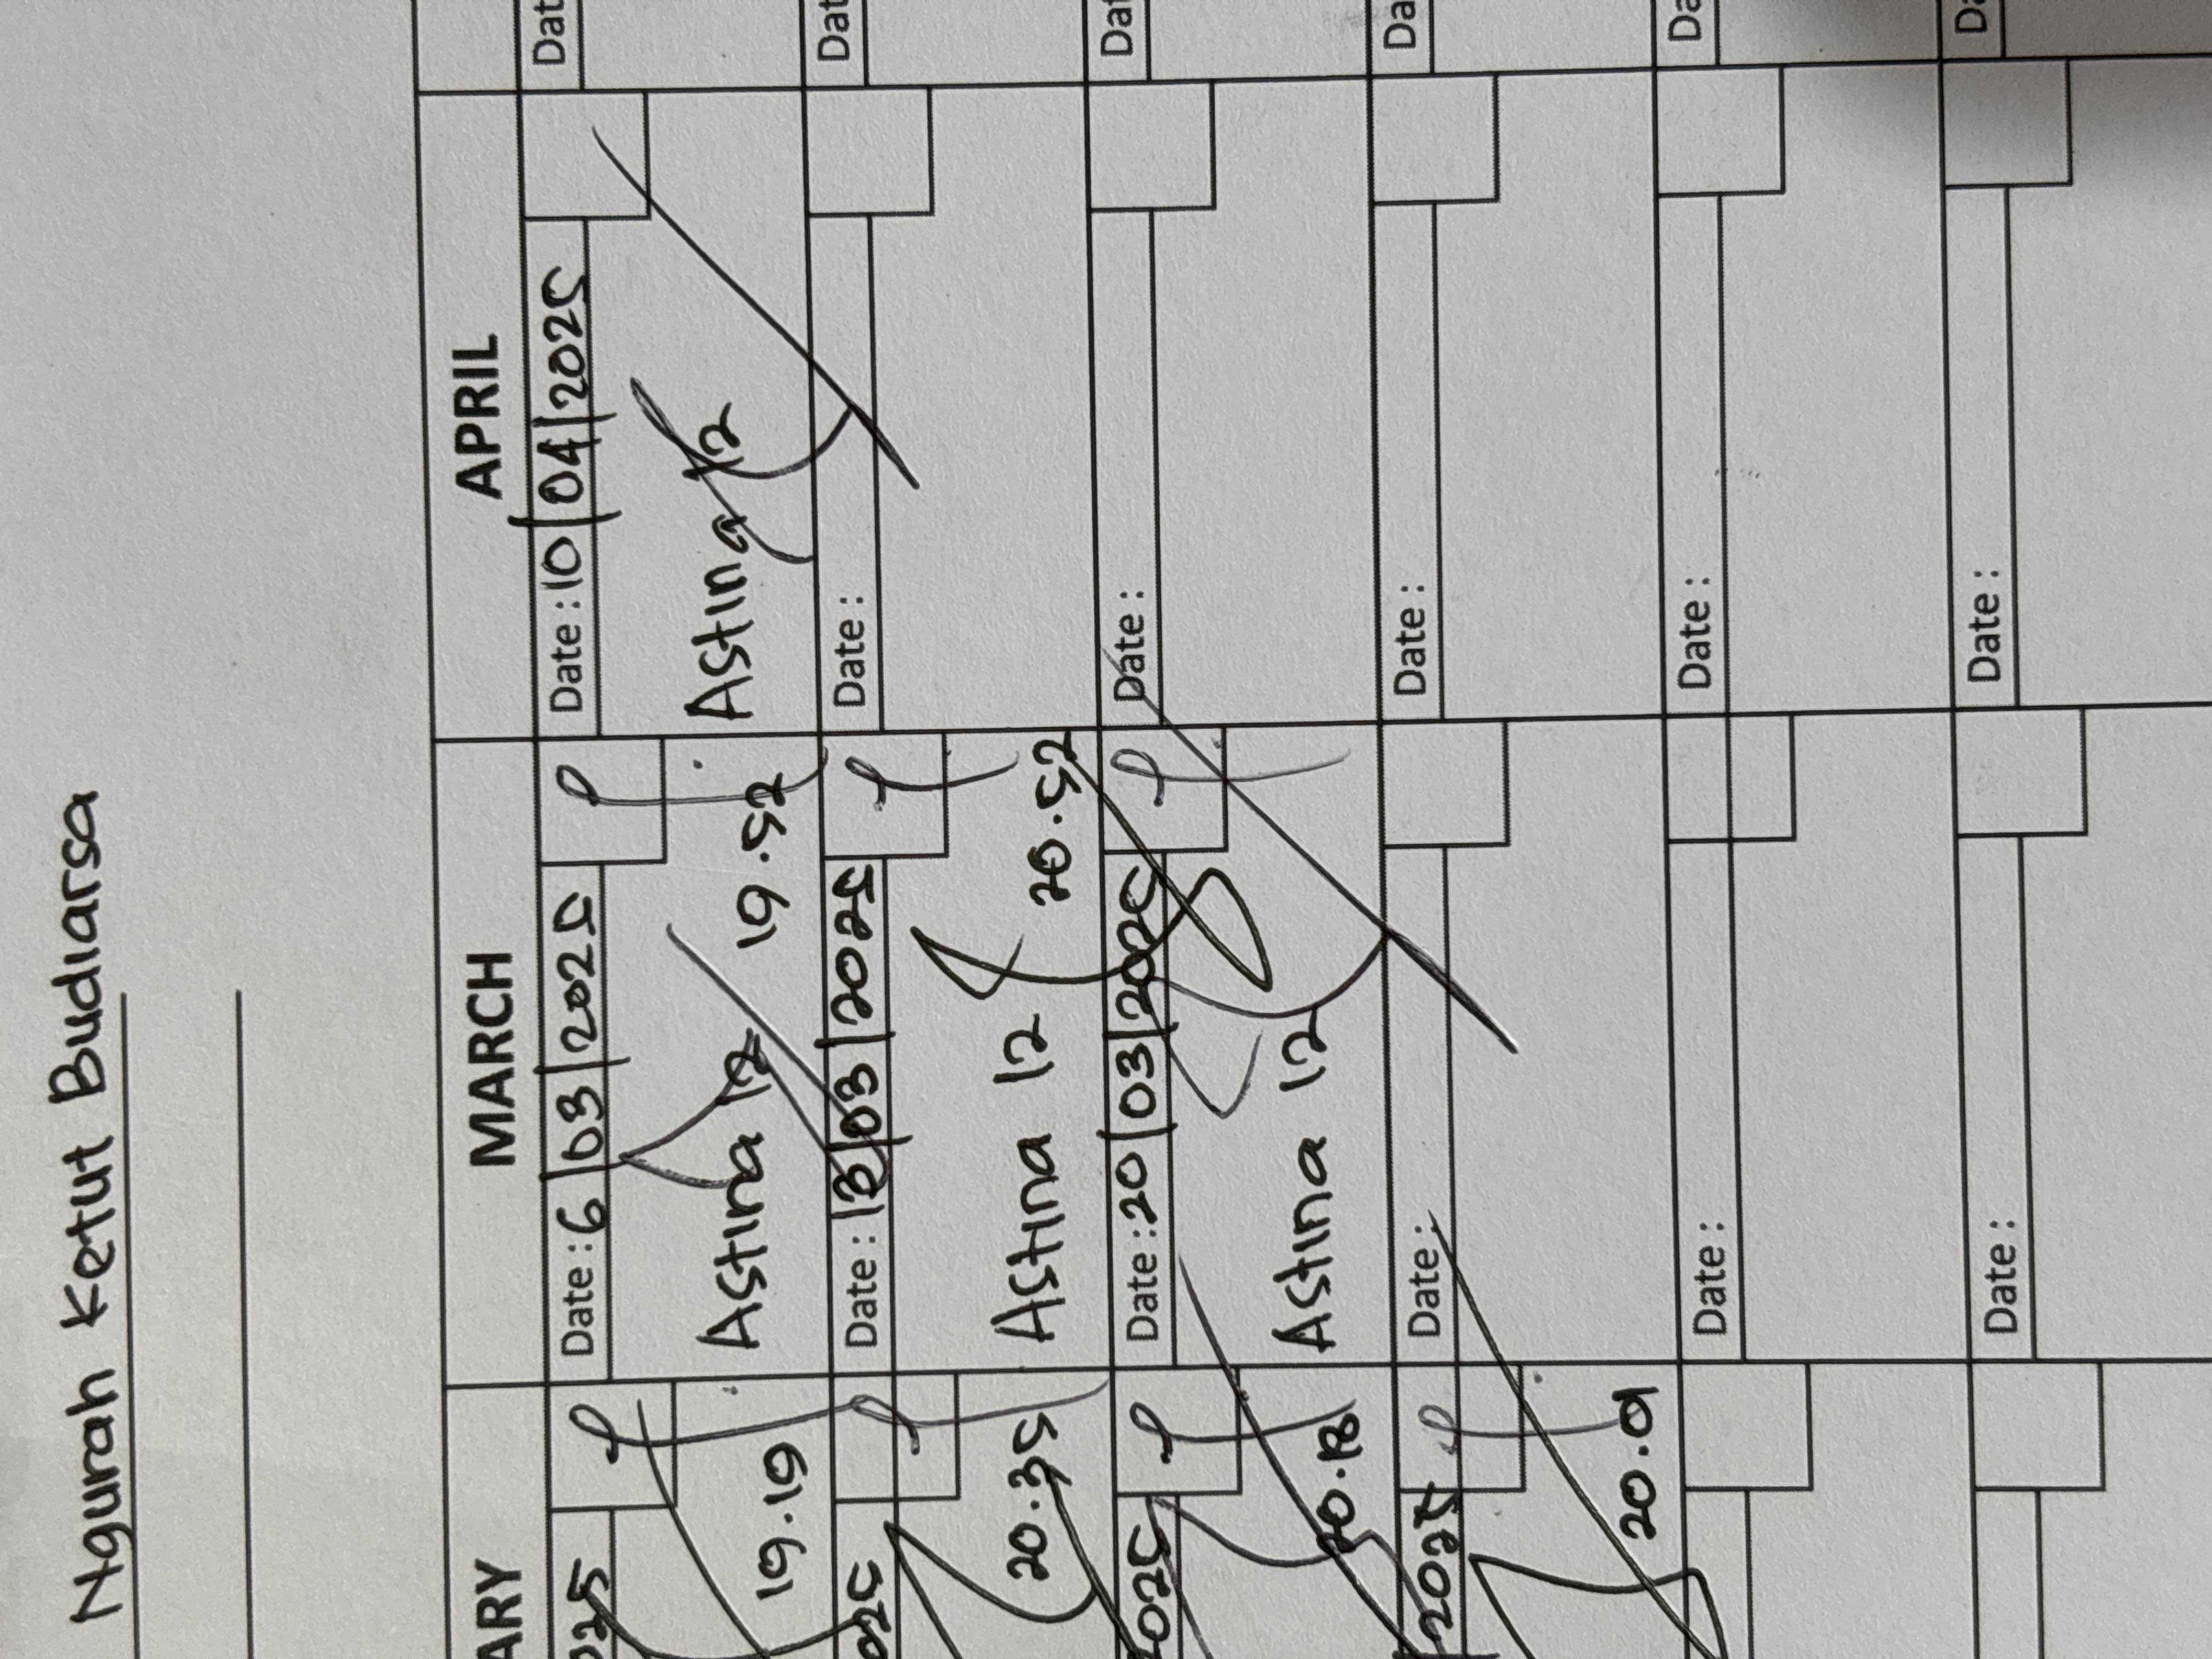 Ngurah Ketut Budiarsa
ARY MARCH APRIL
025 Date : 6/03/2025 Date : 10/04/2025 Dat
19.19 Astina 12 19.52 Astina 12
025 Date : 13/03/2025 Date : Dat
20.35 Astina 12 20.52
025 Date : 20/03/2025 Date : Dat
Astina 12
2025 Date : Date : Da
20.01
Date : Date : Da
Date : Date : Da